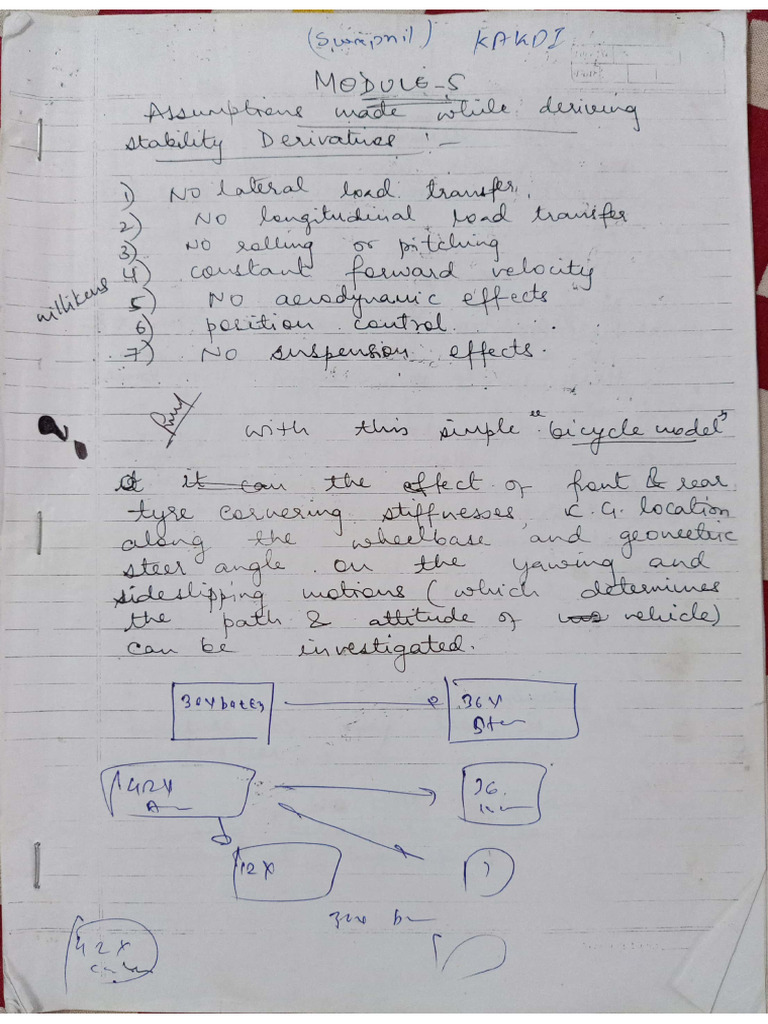 (Swapnil) KAKDI
MODULE-5
Assumptions made while deriving
stability Derivatives :-
1) No lateral load transfer.
2) No longitudinal load transfer
3) No rolling or pitching
4) constant forward velocity
millikens
5) No aerodynamic effects
6) position control.
7) No suspension effects.
?
with this simple "bicycle model"
it can the effect of front & rear
tyre cornering stiffnesses, C.G. location
along the wheelbase and geometric
steer angle on the yawing and
sideslipping motions (which determines
the path & attitude of vehicle)
can be investigated.
36X
42X
36
12X
42X